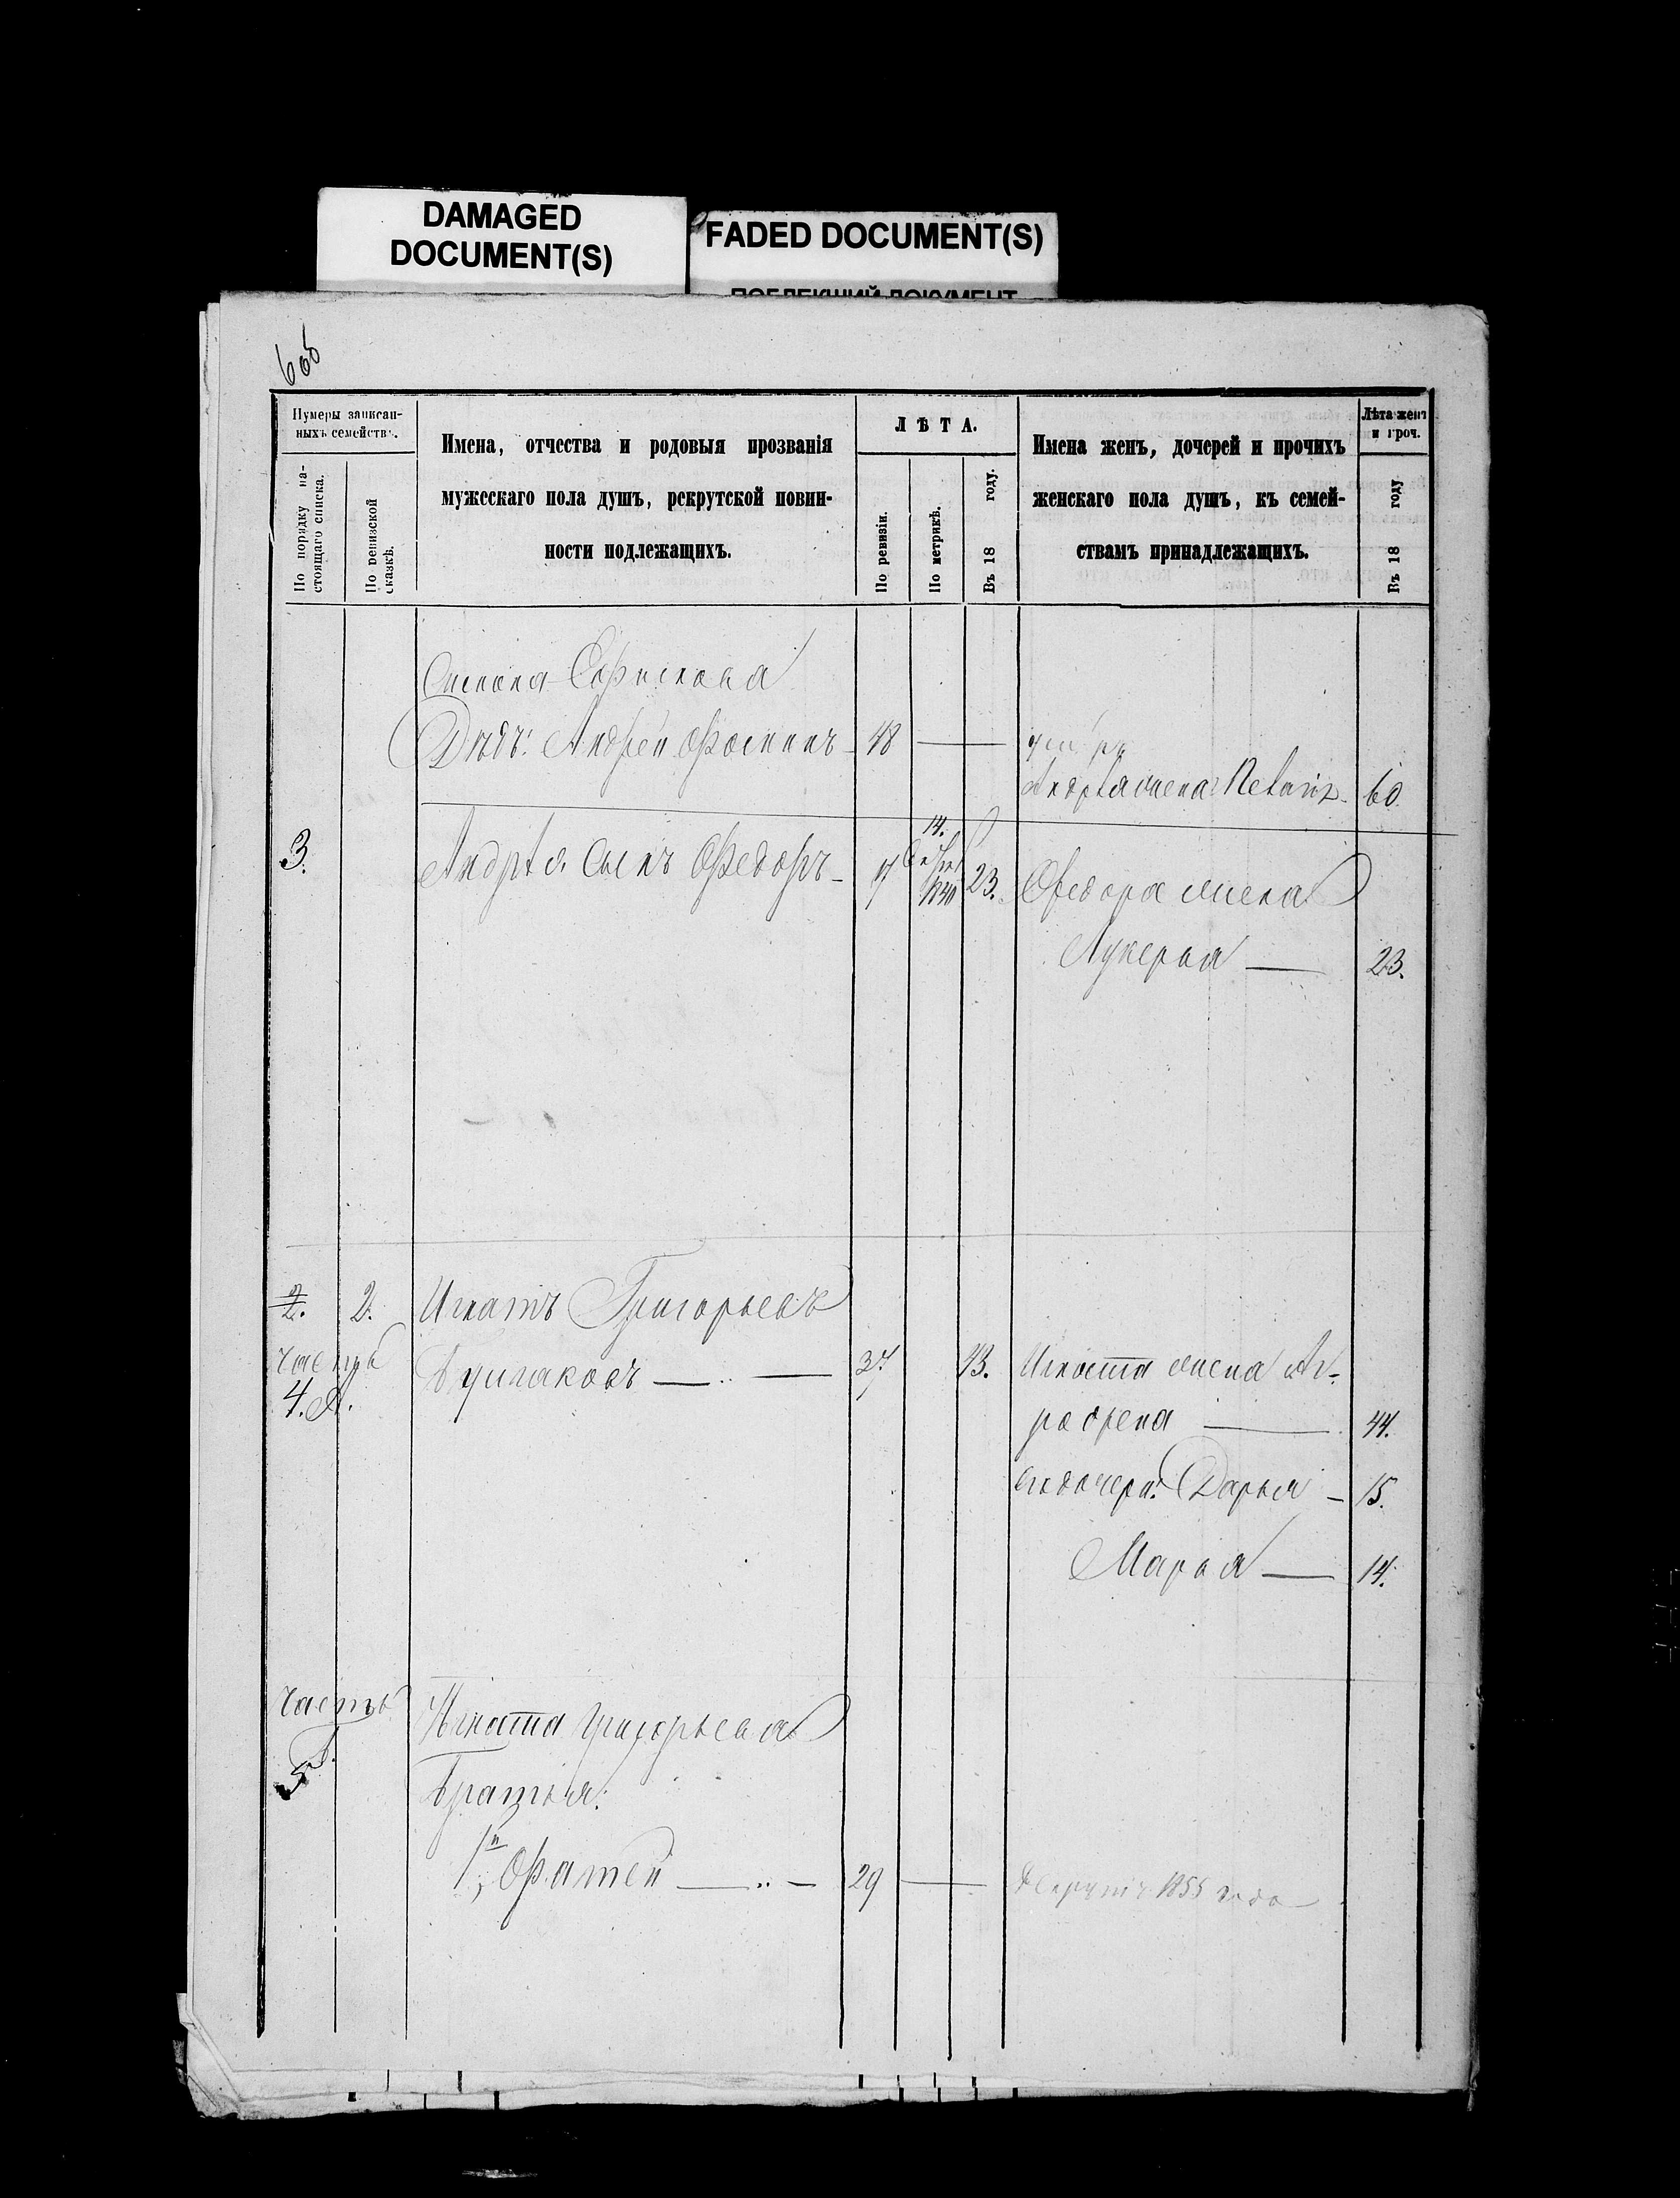 DAMAGED
DOCUMENT(S)
FADED DOCUMENT(S)
ПОБЛЕКШИЙ ДОКУМЕНТ
6об
Нумеры записан-
ныхъ семействъ.
По порядку на-
стоящаго списка.
По ревизской
сказкѣ.
Имена, отчества и родовыя прозванія
мужескаго пола душъ, рекрутской повин-
ности подлежащихъ.
ЛѢТА.
По ревизіи.
По метрикѣ.
Въ 18 году.
Имена женъ, дочерей и прочихъ
женскаго пола душъ, къ семей-
ствамъ принадлежащихъ.
Лѣта женъ
и проч.
Въ 18 году.
Дядъ: Андрей 48
Андрѣя жена 60.
3. Андрѣя сынъ Ѳедоръ 17 14. 1840 23. Ѳедора жена
Лукерья 23.
2. 2. Игнатъ Григорьевъ
часть 37 43. Игната жена Аг-
4. А. рафена 44.
ихъ дочери: Дарья 15.
Марья 14.
часть Игната Григорьева
5 братья:
1й Фатей 29 Рекрутъ 1855 года